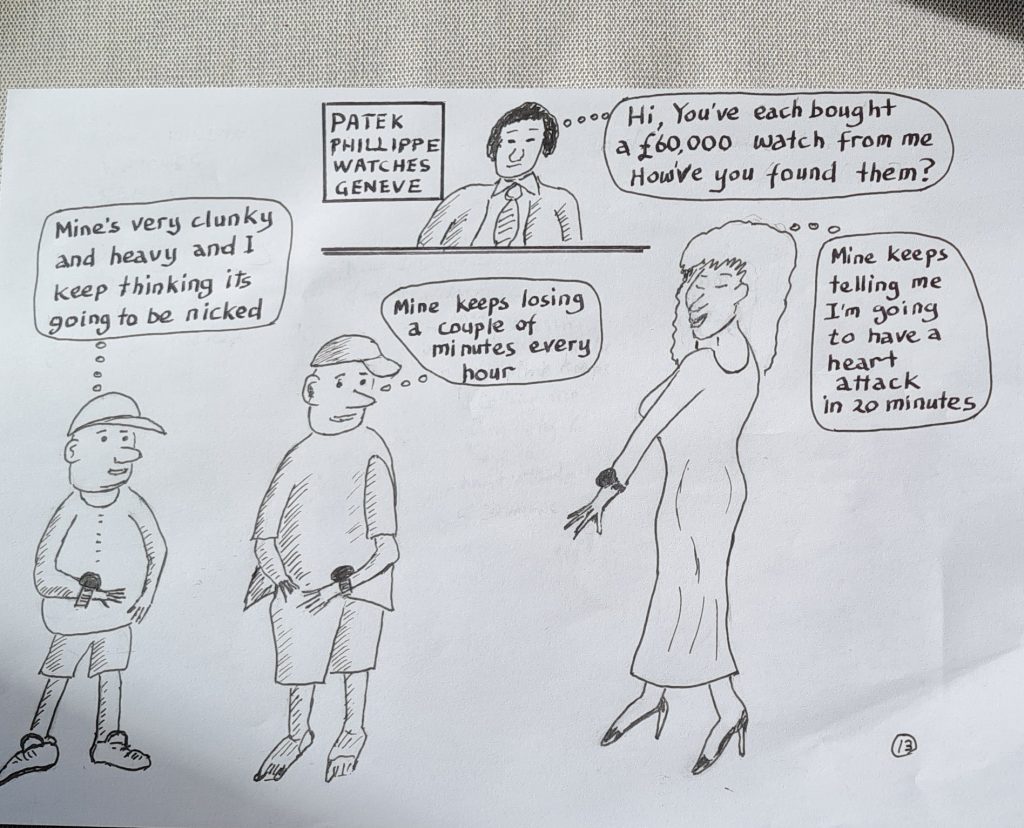 PATEK
PHILLIPPE
WATCHES
GENEVE
Hi, You've each bought
a £60,000 watch from me
How've you found them?
Mine's very clunky
and heavy and I
keep thinking its
going to be nicked
Mine keeps losing
a couple of
minutes every
hour
Mine keeps
telling me
I'm going
to have a
heart
attack
in 20 minutes
13